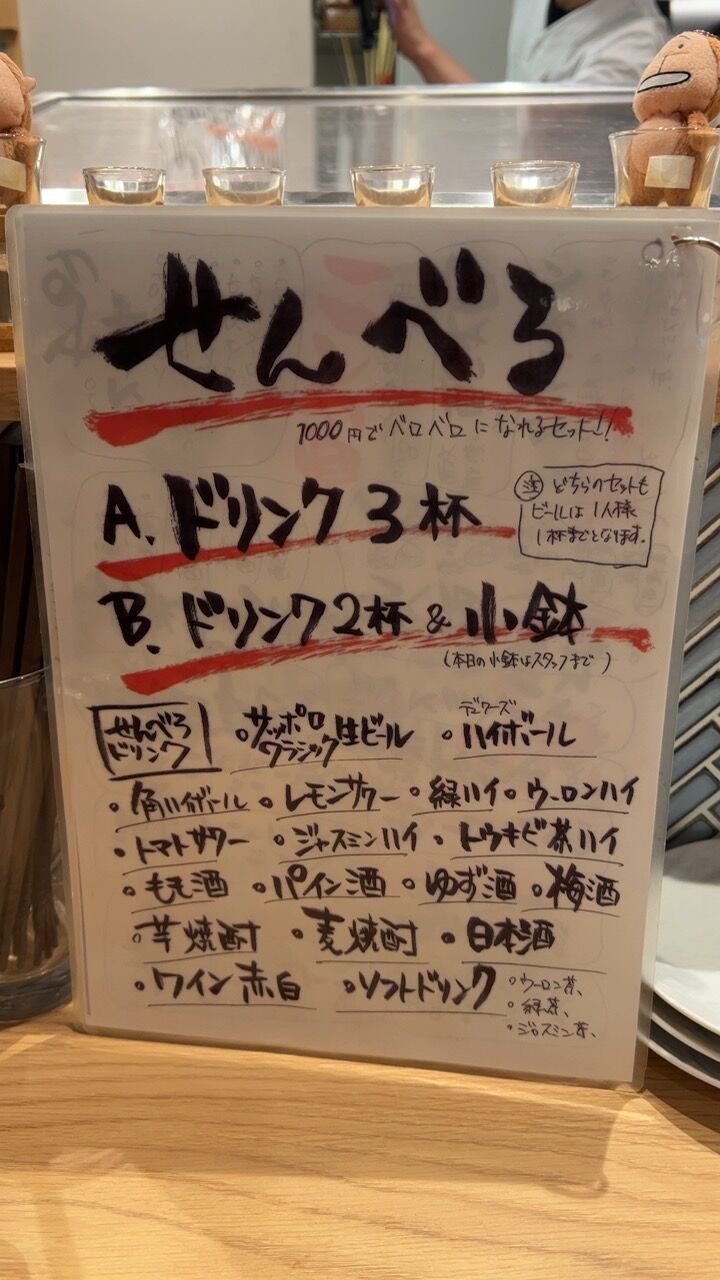 せんべろ
1000円でベロベロになれるセット!!
A. ドリンク3杯
注 どちらのセットも
ビールは1人様
1杯までとなります。
B. ドリンク2杯&小鉢
(本日の小鉢はスタッフまで)
せんべろ
ドリンク
・サッポロクラシック生ビール ・デュワーズハイボール
・角ハイボール ・レモンサワー ・緑ハイ ・ウーロンハイ
・トマトサワー ・ジャスミンハイ ・トウキビ茶ハイ
・もも酒 ・パイン酒 ・ゆず酒 ・梅酒
・芋焼酎 ・麦焼酎 ・日本酒
・ワイン赤白 ・ソフトドリンク
・ウーロン茶、
・緑茶、
・ジャスミン茶、